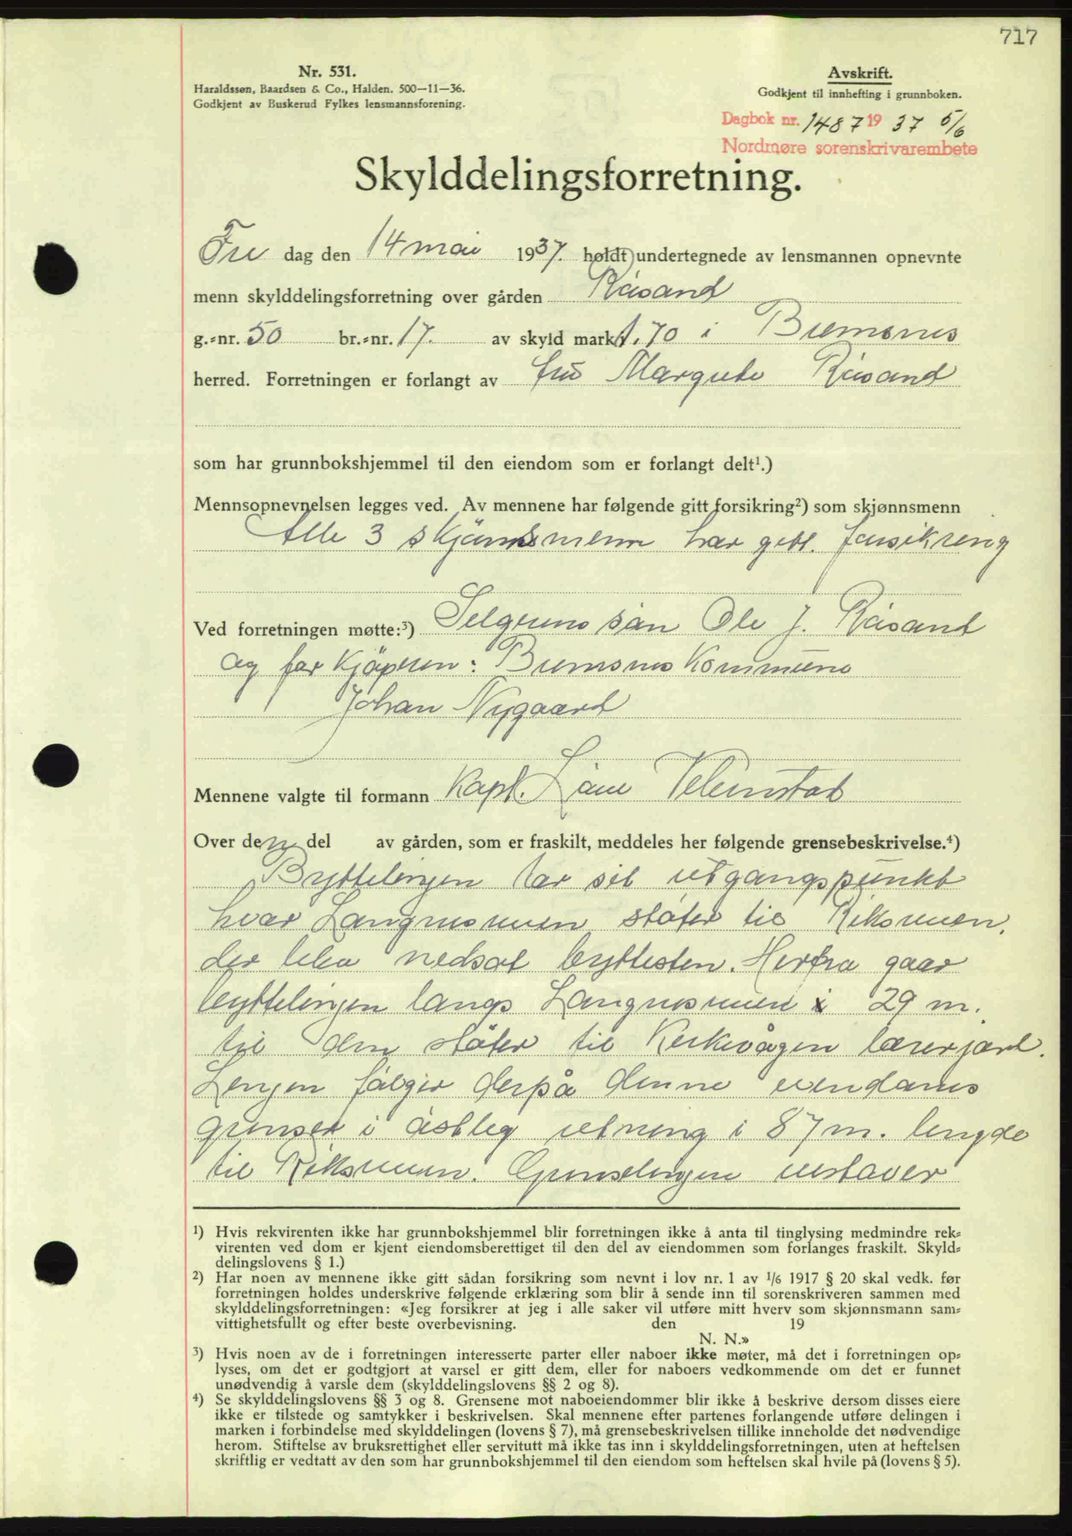 717
Nr. 531.
Haraldssøn, Baardsen & Co., Halden. 500—11—36.
Godkjent av Buskerud Fylkes lensmannsforening.
Avskrift.
Godkjent til innhefting i grunnboken.
Dagbok nr. 1487 19 37 5/6
Nordmøre sorenskrivarembete
Skylddelingsforretning.
Fre dag den 14 mai 1937. holdt undertegnede av lensmannen opnevnte
menn skylddelingsforretning over gården Røsand
g.=nr. 50 br.=nr. 17. av skyld mark 1.70 i Bremsnes
herred. Forretningen er forlangt av fru Margrete Røsand
som har grunnbokshjemmel til den eiendom som er forlangt delt¹.)
Mennsopnevnelsen legges ved. Av mennene har følgende gitt forsikring²) som skjønnsmenn
Alle 3 skjønnsmenn har gitt. forsikring
Ved forretningen møtte:³) Selgerens søn Ole J. Røsand
og for kjøperen: Bremsnes Kommune
Johan Nygaard
Mennene valgte til formann Kapt. Lane
Over den del av gården, som er fraskilt, meddeles her følgende grensebeskrivelse.⁴)
Byttelinjen tar sit utgangspunkt
hvor Langnesveien støter til Riksveien,
der blev nedsat byttesten. Herfra gaar
byttelinjen langs Langnesveien i 29 m.
til den støter til Kirkevågen lærerjord.
Linjen følger derpå denne eiendoms
grenser i østleg retning i 87 m. lengde
til Riksveien. Grenselinjen
¹) Hvis rekvirenten ikke har grunnbokshjemmel blir forretningen ikke å anta til tinglysing medmindre rek=
virenten ved dom er kjent eiendomsberettiget til den del av eiendommen som forlanges fraskilt. Skyld=
delingslovens § 1.)
²) Har noen av mennene ikke gitt sådan forsikring som nevnt i lov nr. 1 av 1/6 1917 § 20 skal vedk. før
forretningen holdes underskrive følgende erklæring som blir å sende inn til sorenskriveren sammen med
skylddelingsforretningen: «Jeg forsikrer at jeg i alle saker vil utføre mitt hverv som skjønnsmann sam=
vittighetsfullt og efter beste overbevisning. den 19
N. N.»
³) Hvis noen av de i forretningen interesserte parter eller naboer ikke møter, må det i forretningen op=
lyses, om det er godtgjort at varsel er gitt dem, eller for naboers vedkommende om det er funnet
unødvendig å varsle dem (skylddelingslovens §§ 2 og 8).
⁴) Se skylddelingslovens §§ 3 og 8. Grensene mot naboeiendommer blir ikke å beskrive dersom disses eiere
ikke er tilstede og samtykker i beskrivelsen. Skal mennene efter partenes forlangende utføre delingen i
marken i forbindelse med skylddelingen (lovens § 7), må grensebeskrivelsen tillike inneholde det nødvendige
herom. Stiftelse av bruksrettighet eller servitutt må ikke tas inn i skylddelingsforretningen, uten at heftelsen
skriftlig er vedtatt av den som har grunnbokshjemmel til den eiendom som heftelsen skal hvile på (lovens § 5).